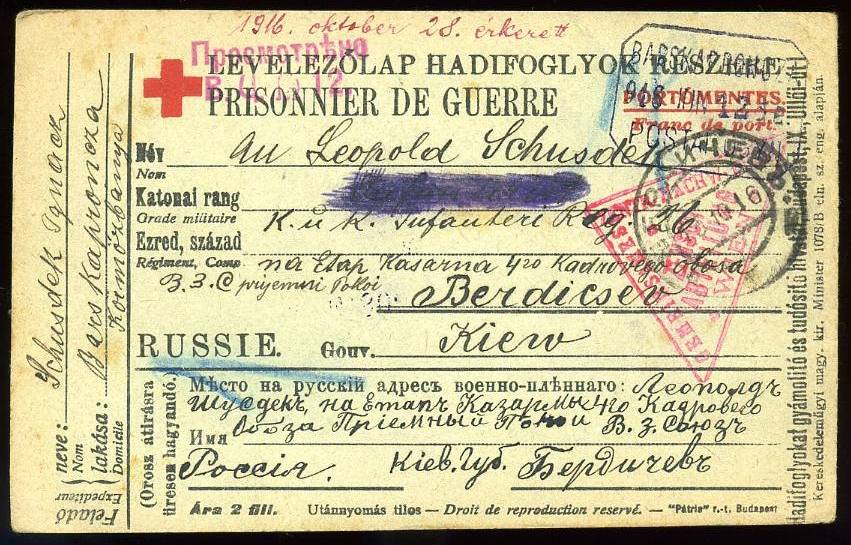 1916. oktober 28. érkerett
Просмотрѣно
LEVELEZŐLAP HADIFOGLYOK RÉSZÉRE
PRISONNIER DE GUERRE
PORTÓMENTES.
Franc de port.
Név
Nom
An Leopold Schusdek
Katonai rang
Grade militaire
K. u. K. Infanteri Reg 26
Ezred, század
Régiment, Comp
na Etap Kasarna 4go Kadrovego obosa
B.З.С prijemni Pokoi
Berdicsev
RUSSIE. Gouv. Kiew
Мѣсто на русскій адресъ военно-плѣннаго: Леопольдъ
Шусдекъ, на Етапъ Казармы 4го Кадровего
Обоза Пріемный Покой В.З.Союзъ
Имя
Россія. Кіев. Губ. Бердичевъ
Ára 2 fill. Utánnyomás tilos – Droit de reproduction resérvé. – "Pátria" r.-t. Budapest
(Orosz átírásra
üresen hagyandó.)
Feladó
Expediteur
neve: Schusdek Ignacz
Nom
lakása: Bars Kaproncza
Domicile
Körmöczbánya
Hadifoglyokat gyámolító és tudósító hivatal Budapest, IX., Üllői-út 1
Kereskedelemügyi magy. kir. Minister 1078/B eln. sz. eng. alapján.